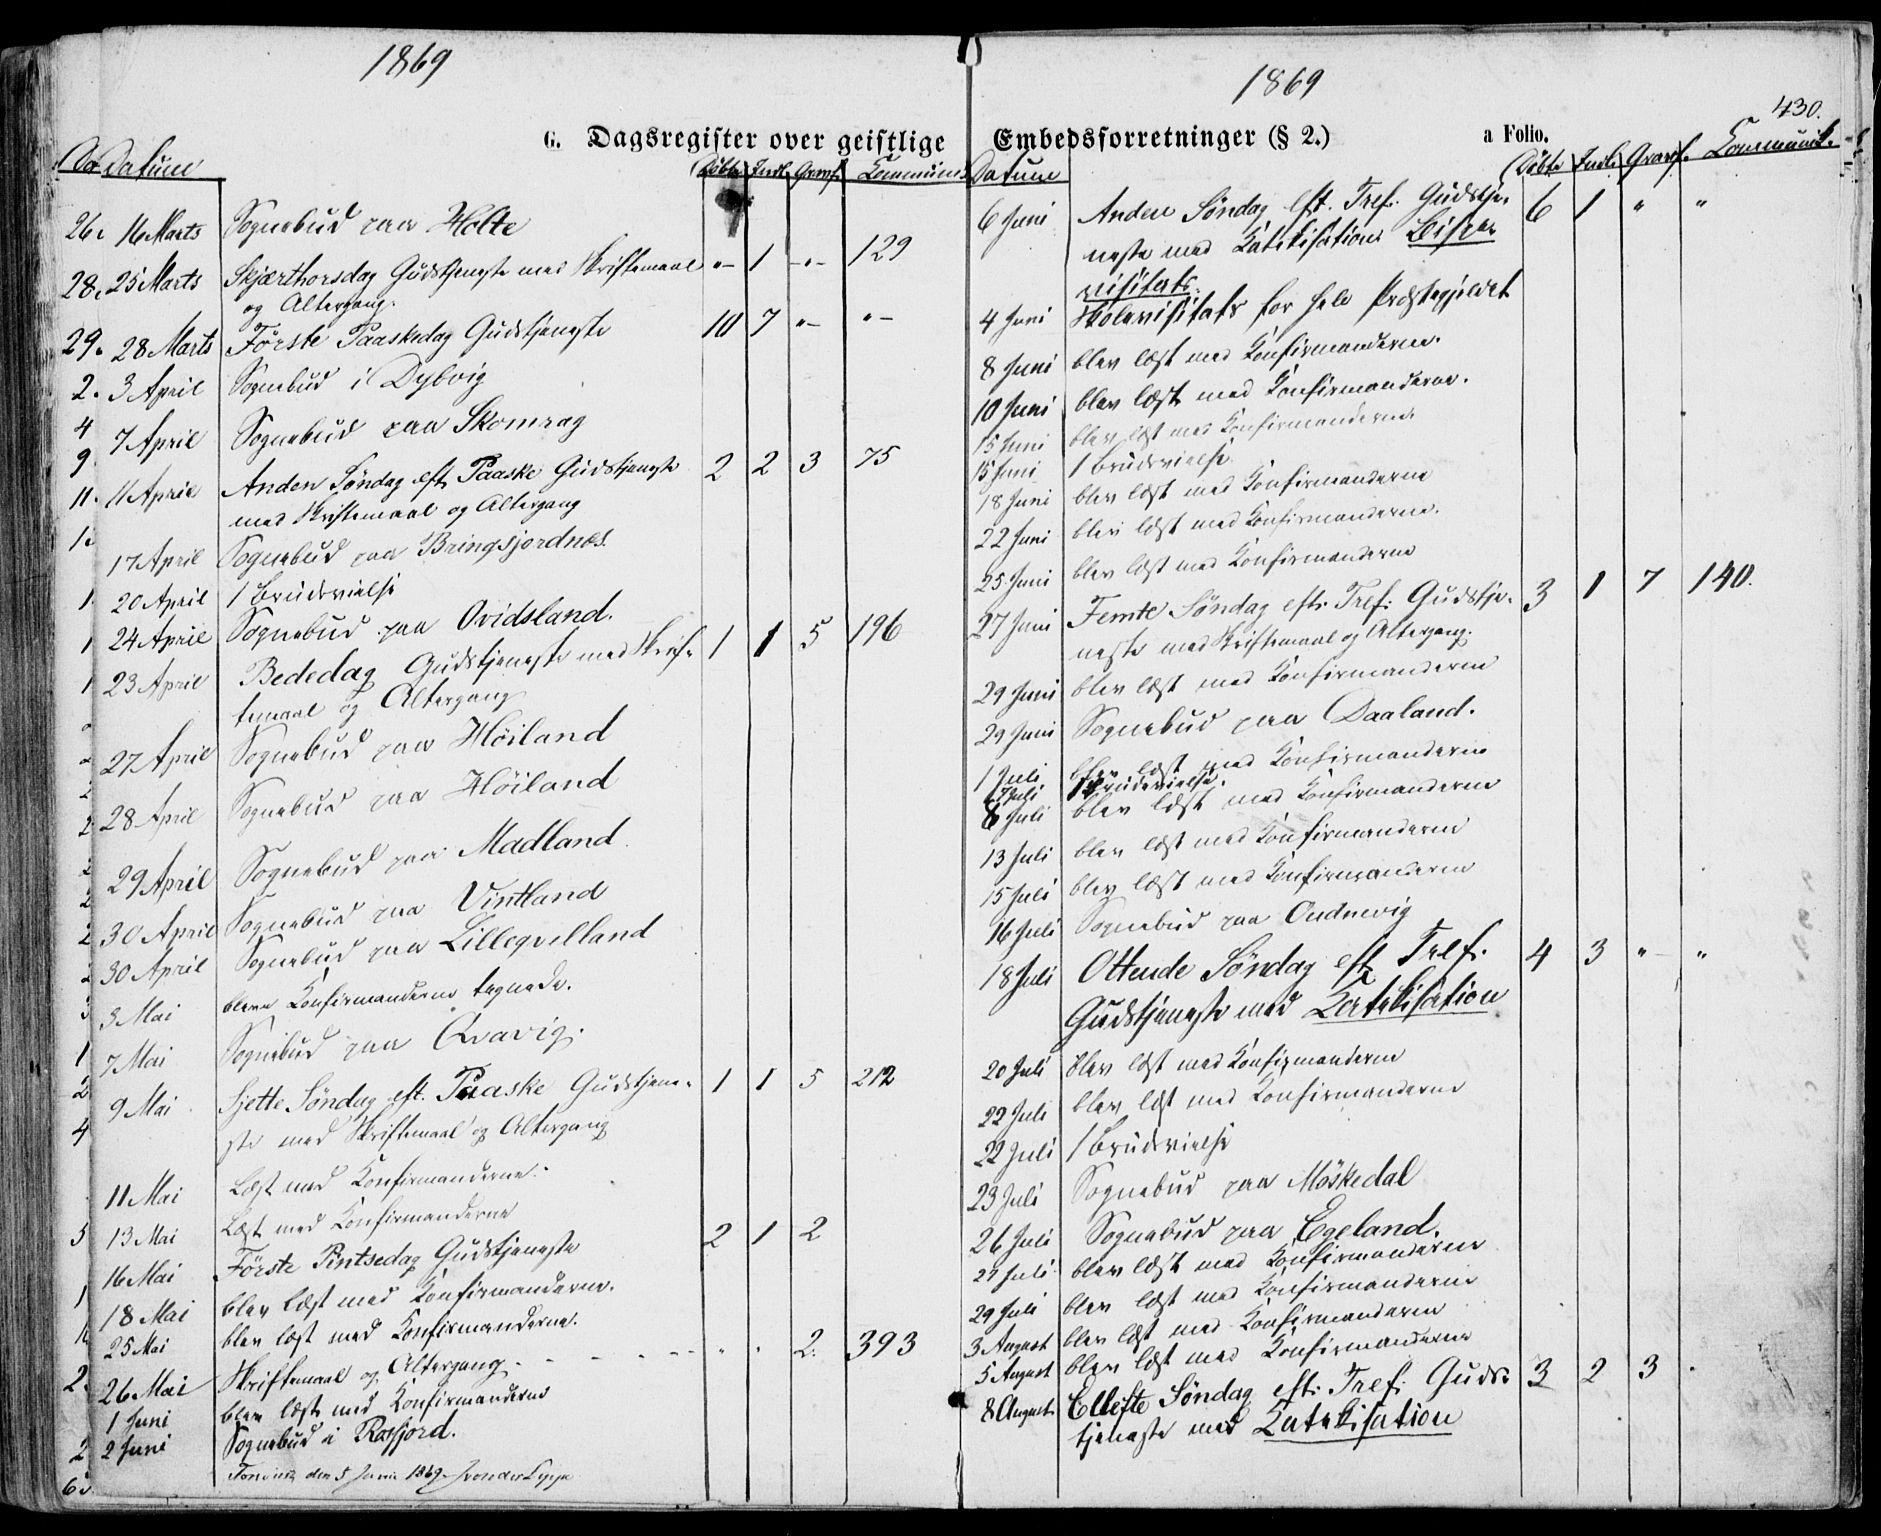 1869
G. Dagsregister over geistlige
Datum Døbte Indl. Gravf. Kommunic.
16 Marts Sognebud paa Holte
25 Marts Skjærthorsdag Gudstjeneste med Skriftemaal "- 1 -"- 129
og Altergang.
28 Marts Første Paaskedag Gudstjeneste 10 7 "- "-
3 April Sognebud i Dybvig
7 April Sognebud paa Skomrag
11 April Anden Søndag eft. Paaske Gudstjeneste 2 2 3 75
med Skriftemaal og Altergang
17 April Sognebud paa Bringsjordnæs.
20 April 1 Brudevielse
24 April Sognebud paa Ovidsland.
23 April Bededag Gudstjeneste med Skrif- 1 1 5 196
temaal og Altergang
27 April Sognebud paa Høiland
28 April Sognebud paa Høiland
29 April Sognebud paa Madland
30 April Sognebud paa Vintland
30 April Sognebud paa Lilleqvelland
3 Mai bleve Konfirmanderne tegnede.
7 Mai Sognebud paa Qvavig.
9 Mai Sjette Søndag eft. Paaske Gudstjene- 1 1 5 212
ste med Skriftemaal og Altergang
11 Mai Læst med Konfirmanderne.
13 Mai Læst med Konfirmanderne
16 Mai Første Pintsedag Gudstjeneste 2 1 2
18 Mai blev læst med Konfirmanderne.
25 Mai blev læst med Konfirmanderne.
26 Mai Skriftemaal og Altergang - - - - - " " 2. 393
1 Juni blev læst med Konfirmanderne
2 Juni Sognebud i Rosfjord.
den 5 Juni 1869
1869
430.
Embedsforretninger (§ 2.) a Folio.
Datum Døbte Indl. Gravf. Kommunik.
6 Juni Anden Søndag eft. Tref. Gudstje- 6 1 " "
neste med Katekisation Bispe
visitats.
4 Juni Skolevisitats for hele Præstegjeldet
8 Juni blev læst med Konfirmanderne.
10 Juni blev læst med Konfirmanderne.
15 Juni blev læst med Konfirmanderne
15 Juni 1 Brudevielse
18 Juni blev læst med Konfirmanderne
22 Juni blev læst med Konfirmanderne.
25 Juni blev læst med Konfirmanderne
27 Juni Femte Søndag eft. Tref. Gudstje- 3 1 7 140.
neste med Skriftemaal og Altergang.
29 Juni blev læst med Konfirmanderne
29 Juni Sognebud paa Daaland.
1 Juli blev læst med Konfirmanderne
7 Juli 1 Brudevielse.
8 Juli blev læst med Konfirmanderne
13 Juli blev læst med Konfirmanderne
15 Juli blev læst med Konfirmanderne
16 Juli Sognebud paa Oudnevig
18 Juli Ottende Søndag eft. Tref. 4 3 "- "
Gudstjeneste med Katekisation
20 Juli blev læst med Konfirmanderne
22 Juli blev læst med Konfirmanderne
22 Juli 1 Brudevielse
23 Juli Sognebud paa Møskedal
26 Juli Sognebud paa Egeland.
27 Juli blev læst med Konfirmanderne
29 Juli blev læst med Konfirmanderne
3 August blev læst med Konfirmanderne
5 August blev læst med Konfirmanderne
8 August Ellefte Søndag eft. Tref. Guds- 3 2 3 .
tjeneste med Katekisation